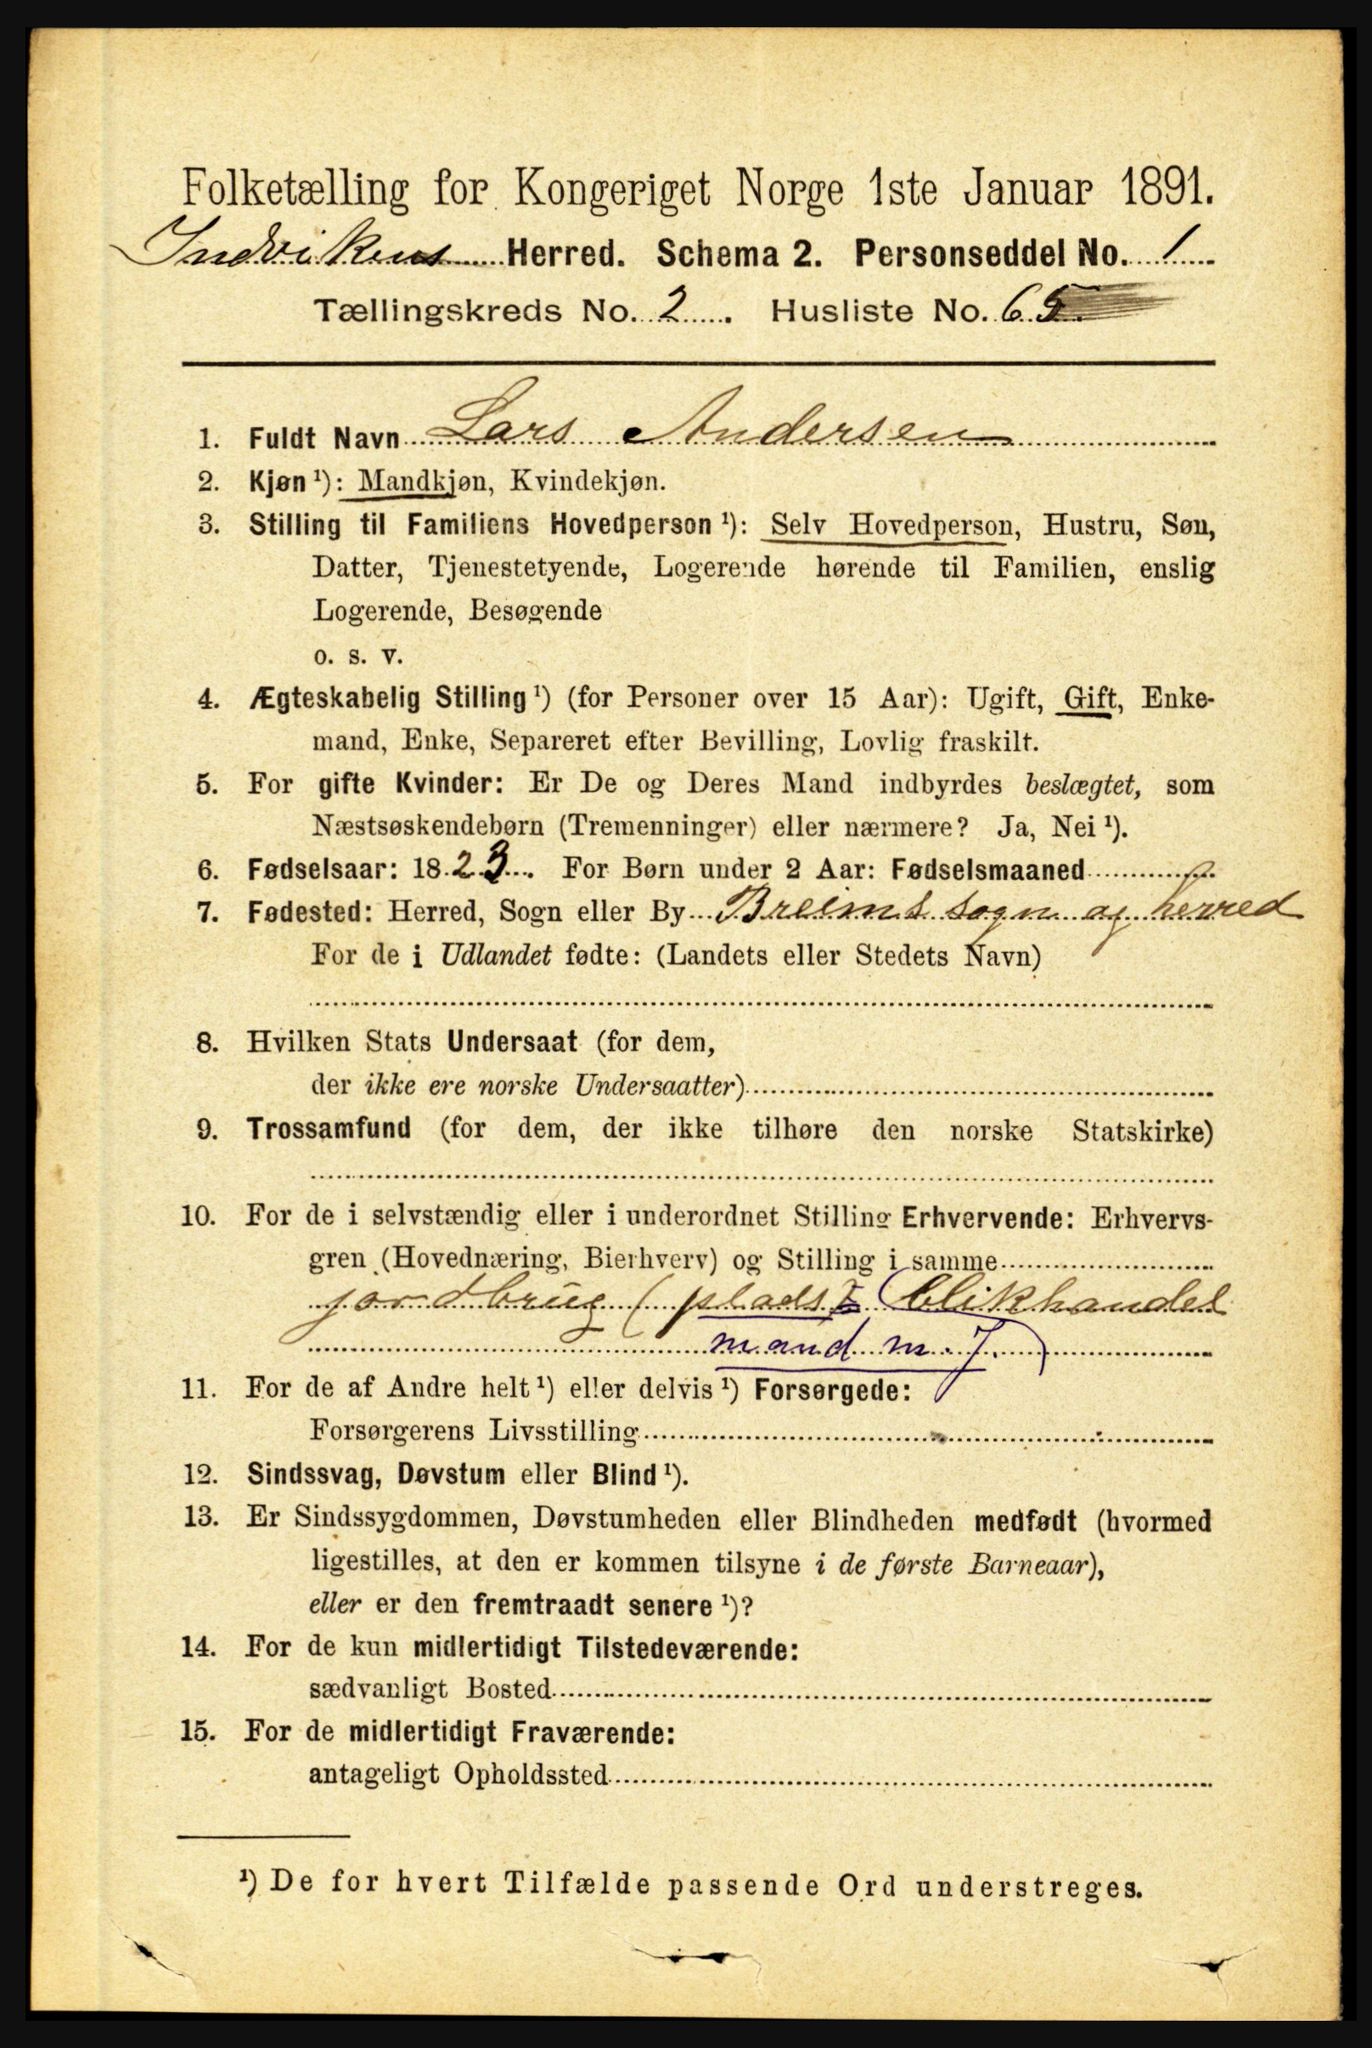 Folketælling for Kongeriget Norge 1ste Januar 1891.
Indvikens Herred. Schema 2. Personseddel No. 1
Tællingskreds No. 2. Husliste No. 65
1. Fuldt Navn Lars Andersen
2. Kjøn ¹): Mandkjøn, Kvindekjøn.
3. Stilling til Familiens Hovedperson ¹): Selv Hovedperson, Hustru, Søn,
Datter, Tjenestetyende, Logerende hørende til Familien, enslig
Logerende, Besøgende
o. s. v.
4. Ægteskabelig Stilling ¹) (for Personer over 15 Aar): Ugift, Gift, Enke-
mand, Enke, Separeret efter Bevilling, Lovlig fraskilt.
5. For gifte Kvinder: Er De og Deres Mand indbyrdes beslægtet, som
Næstsøskendebørn (Tremenninger) eller nærmere? Ja, Nei ¹).
6. Fødselsaar: 1823. For Børn under 2 Aar: Fødselsmaaned
7. Fødested: Herred, Sogn eller By Breims sogn og herred
For de i Udlandet fødte: (Landets eller Stedets Navn)
8. Hvilken Stats Undersaat (for dem,
der ikke ere norske Undersaatter)
9. Trossamfund (for dem, der ikke tilhøre den norske Statskirke)
10. For de i selvstændig eller i underordnet Stilling Erhvervende: Erhvervs-
gren (Hovednæring, Bierhverv) og Stilling i samme
jordbrug (plads blikhandel
mand m. J.)
11. For de af Andre helt ¹) eller delvis ¹) Forsørgede:
Forsørgerens Livsstilling
12. Sindssvag, Døvstum eller Blind ¹).
13. Er Sindssygdommen, Døvstumheden eller Blindheden medfødt (hvormed
ligestilles, at den er kommen tilsyne i de første Barneaar),
eller er den fremtraadt senere ¹)?
14. For de kun midlertidigt Tilstedeværende:
sædvanligt Bosted
15. For de midlertidigt Fraværende:
antageligt Opholdssted
¹) De for hvert Tilfælde passende Ord understreges.